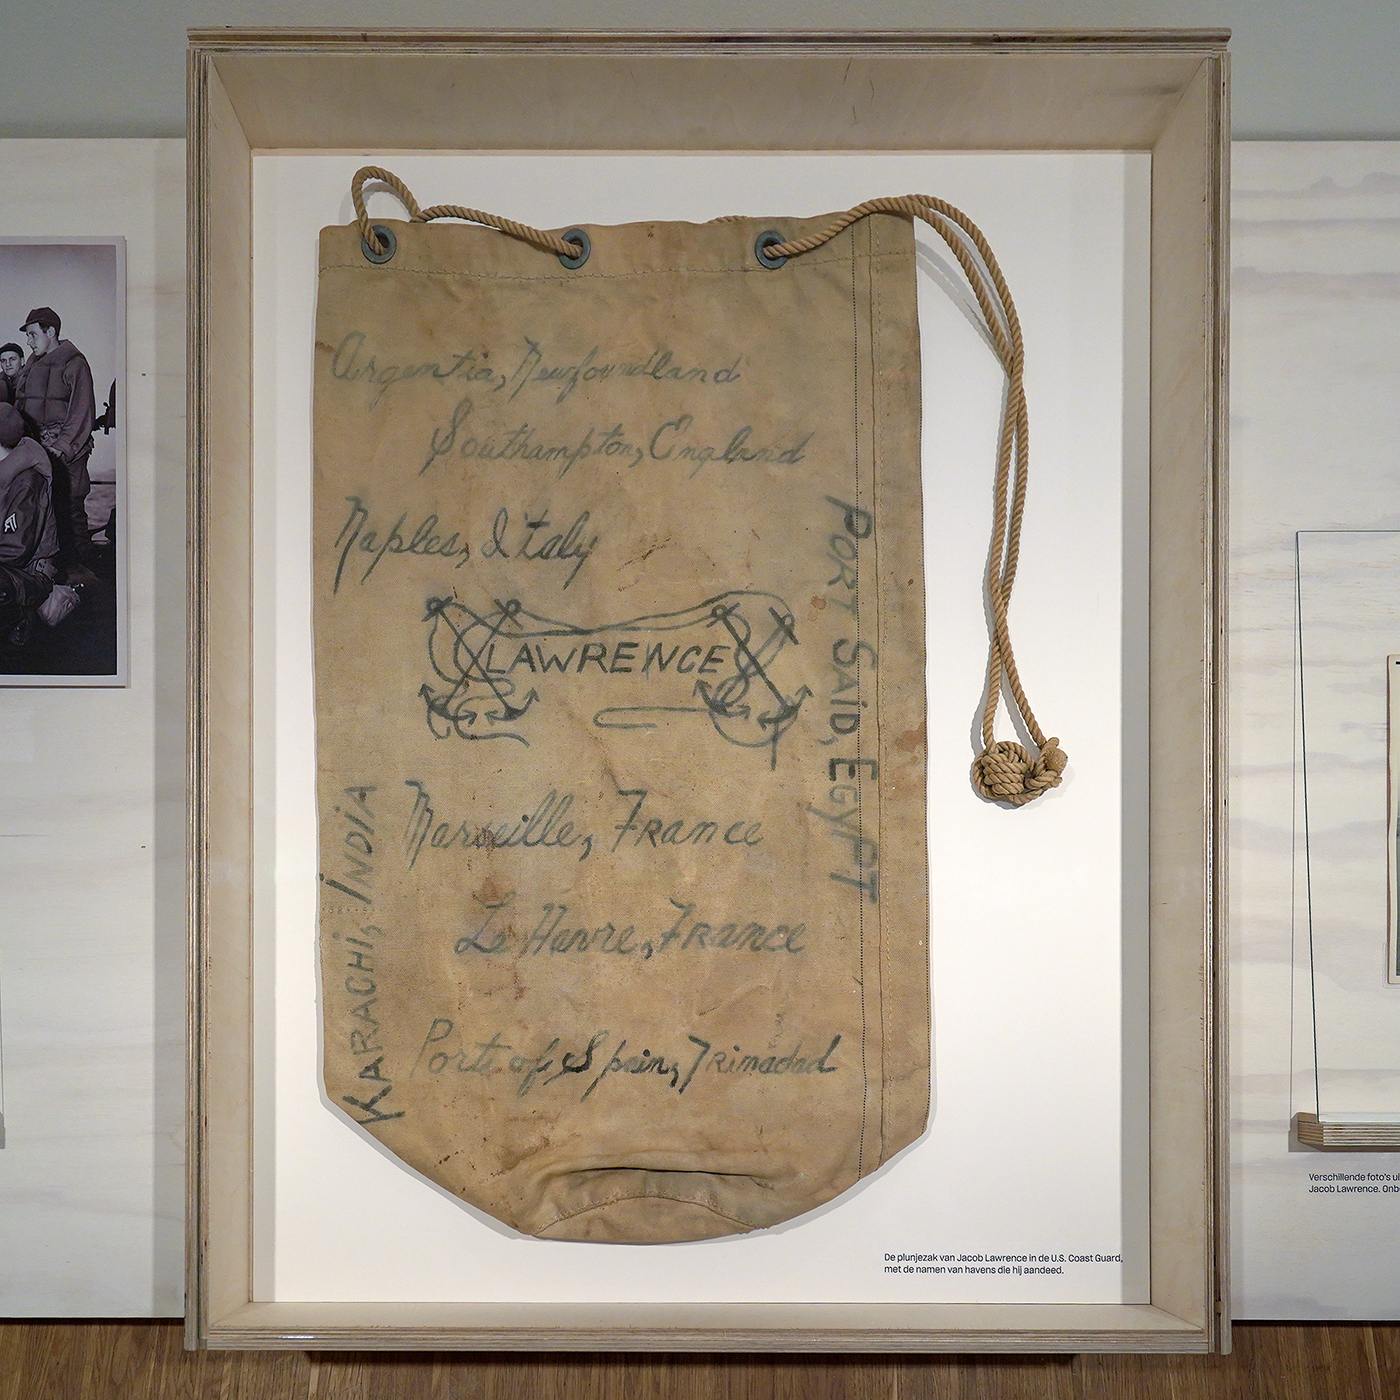 Argentia, Newfoundland
Southampton, England
Naples, Italy
LAWRENCE
PORT SAID, EGYPT
Marseille, France
KARACHI, INDIA
Le Havre, France
Port of Spain, Trinadad
De plunjezak van Jacob Lawrence in de U.S. Coast Guard,
met de namen van havens die hij aandeed.
Verschillende foto's
Jacob Lawrence.